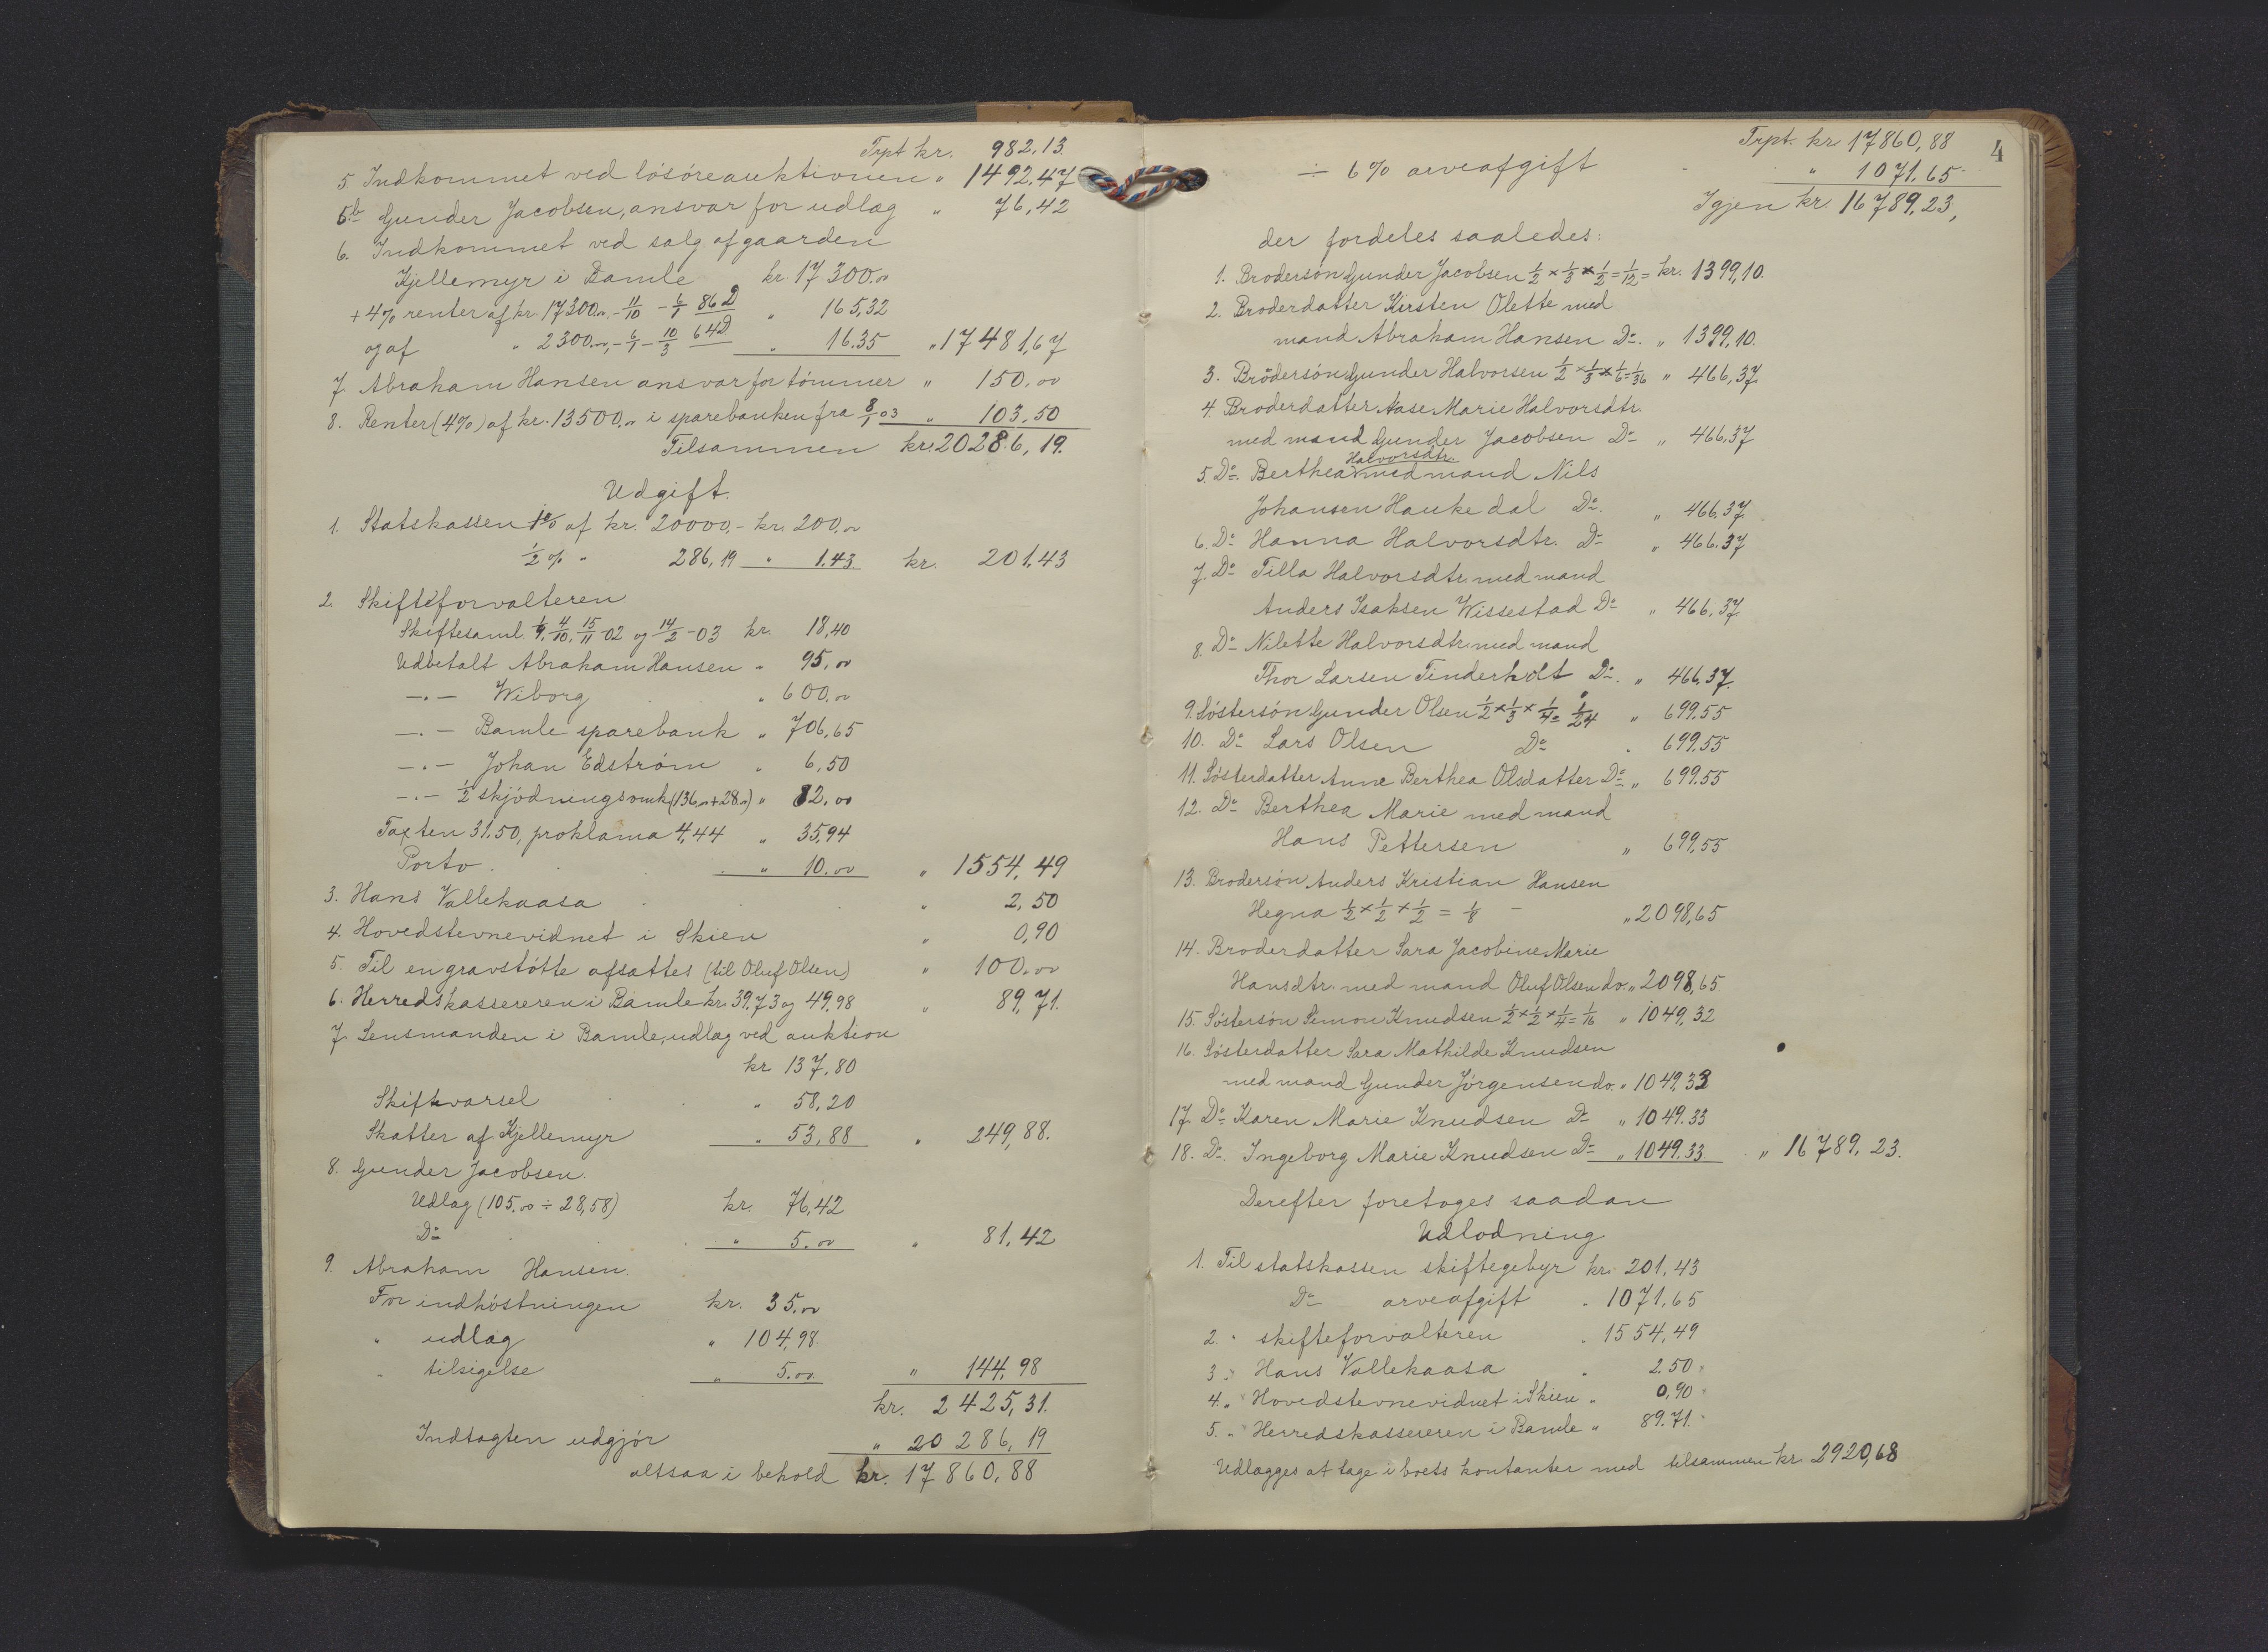 Trpt kr. 982.13.
5 Indkommet ved lösöreauktionen " 1492.47
5b Gunder Jacobsen, ansvar for udlæg " 76,42
6. Indkommet ved salg af gaarden
Kjellemyr i Bamle kr. 17300.00
+ 4% renter af kr. 17300.00 - 11/10 - 6/1 86 D " 165,32
og af " 2300.00, - 6/1 - 10/3 64 D " 16.35 " 17481,67
7. Abraham Hansen ansvar for tömmer " 150.00
8. Renter (4%) af kr. 13500.00 i sparebanken fra 8/1 03 " 103,50
Tilsammen kr. 20286,19.
Udgift.
1. Statskassen 1% af kr. 20000,- kr. 200.00
1/2 % " 286,19 " 1.43 kr. 201,43
2. Skifteforvalteren
Skiftesaml. 1/9, 4/10, 15/11 -02 og 14/2 -03 kr. 18,40
Udbetalt Abraham Hansen " 95.00
-"- Wiborg " 600.00
-"- Bamle sparebank " 706,65
-"- Johan Edström " 6,50
-"- 1/2 skjödningsomk (136.00 + 28.00) " 82.00
Taxten 31.50, proklama 4,44 " 35,94
Porto. " 10.00 " 1554,49
3. Hans Vallekaasa " 2,50
4. Hovedstevnevidnet i Skien " 0,90
5. Til en gravstötte afsattes (til Oluf Olsen) " 100.00
6. Herredskassereren i Bamle kr. 39.73 og 49.98 " 89,71.
7. Lensmanden i Bamle, udlæg ved auktion
kr 137,80
Skiftevarsel " 58,20
Skatter af Kjellemyr " 53,88 " 249,88.
8. Gunder Jacobsen.
Udlæg (105.00 ÷ 28,58) kr. 76,42
Do " 5.00 " 81,42
9. Abraham Hansen.
For indhöstningen kr. 35.00
" udlæg " 104,98.
" tilsigelse " 5.00 " 144,98
kr. 2425,31.
Indtægten udgjör " 20286,19
altsaa i behold kr. 17860.88
4
Trpt. kr 17860,88
÷ 6% arveafgift " 1071.65
Igjen kr. 16789,23,
der fordeles saaledes:
1. Brodersön Gunder Jacobsen 1/2 × 1/3 × 1/2 = 1/12 = kr. 1399,10.
2. Broderdatter Kirsten Olette med
mand Abraham Hansen Do. " 1399,10.
3. Brödersön Gunder Halvorsen 1/2 × 1/3 × 1/6 = 1/36 " 466,37.
4. Broderdatter Aase Marie Halvorsdtr.
med mand Gunder Jacobsen Do " 466,37
Halvorsdtr.
5. Do. Berthea med mand Nils
Johansen Haukedal Do. " 466,37.
6. Do Hanna Halvorsdtr. Do " 466.37
7. Do Tilla Halvorsdtr. med mand
Anders Isaksen Wissestad Do " 466,37
8. Do Nilette Halvorsdtr. med mand
Thor Larsen Tinderholt Do. " 466,37.
9. Söstersön Gunder Olsen 1/2 × 1/3 × 1/4 = 1/24 " 699.55
10. Do Lars Olsen Do " 699.55
11. Sösterdatter Anne Berthea Olsdatter Do " 699.55
12. Do Berthea Marie med mand
Hans Pettersen " 699,55
13. Brodersön Anders Kristian Hansen
Hegna 1/2 × 1/2 × 1/2 = 1/8 - " 2098,65
14. Broderdatter Sara Jacobine Marie
Hansdtr. med mand Oluf Olsen do. " 2098,65.
15. Söstersön Simon Knudsen 1/2 × 1/2 × 1/4 = 1/16 " 1049,32
16. Sösterdatter Sara Mathilde Knudsen
med mand Gunder Jörgensen do. " 1049.33
17. Do Karen Marie Knudsen Do " 1049.33
18. Do. Ingeborg Marie Knudsen Do " 1049.33 " 16789,23.
Derefter foretoges saadan
Udlodning
1. Til statskassen skiftegebyr kr. 201,43
Do arveafgift " 1071,65
2. " skifteforvalteren " 1554,49
3. " Hans Vallekaasa " 2.50
4. " Hovedstevnevidnet i Skien " 0,90
5. " Herredskassereren i Bamle " 89.71.
Udlægges at tage i boets kontanter med tilsammen kr. 2920,68